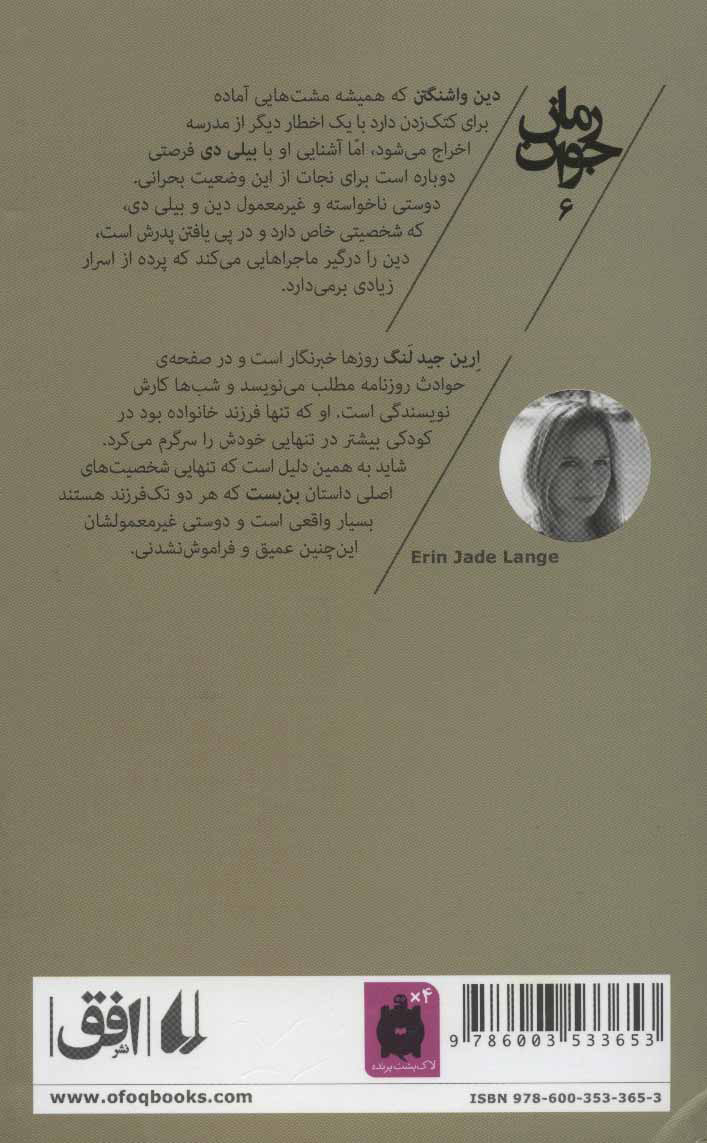 رمان
جوان
۶
دین واشنگتن که همیشه مشت‌هایی آماده
برای کتک‌زدن دارد با یک اخطار دیگر از مدرسه
اخراج می‌شود، امّا آشنایی او با بیلی دی فرصتی
دوباره است برای نجات از این وضعیت بحرانی.
دوستی ناخواسته و غیرمعمول دین و بیلی دی،
که شخصیتی خاص دارد و در پی یافتن پدرش است،
دین را درگیر ماجراهایی می‌کند که پرده از اسرار
زیادی برمی‌دارد.
اِرین جید لَنگ روزها خبرنگار است و در صفحه‌ی
حوادث روزنامه مطلب می‌نویسد و شب‌ها کارش
نویسندگی است. او که تنها فرزند خانواده بود در
کودکی بیشتر در تنهایی خودش را سرگرم می‌کرد.
شاید به همین دلیل است که تنهایی شخصیت‌های
اصلی داستان بن‌بست که هر دو تک‌فرزند هستند
بسیار واقعی است و دوستی غیرمعمولشان
این‌چنین عمیق و فراموش‌نشدنی.
Erin Jade Lange
نشر افق
×۴
لاک‌پشت پرنده
9 786003 533653
www.ofoqbooks.com
ISBN 978-600-353-365-3